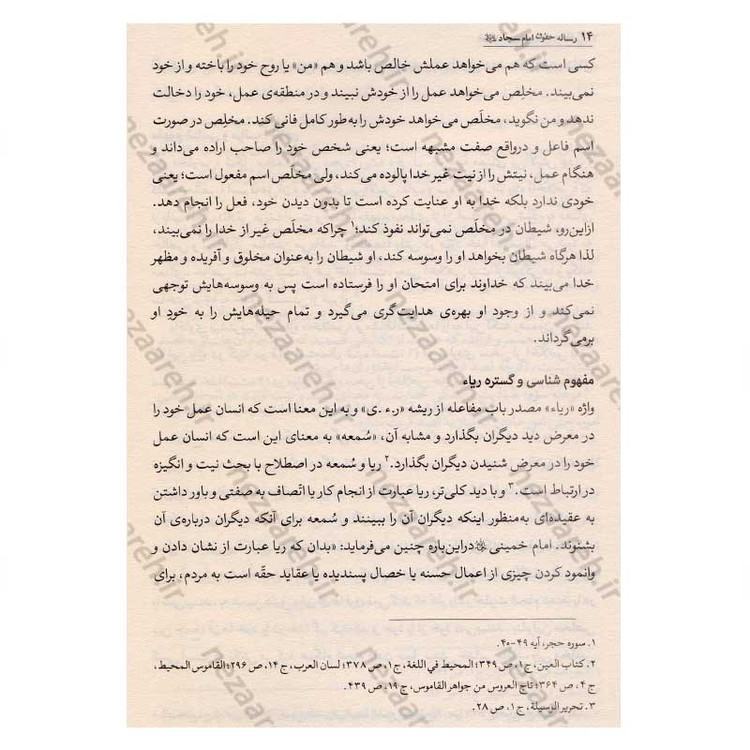 ۱۴ رساله حقوق امام سجاد
کسی است که هم می‌خواهد عملش خالص باشد و هم «من» یا روح خود را باخته و از خود
نمی‌بیند. مخلِص می‌خواهد عمل را از خودش نبیند و در منطقه‌ی عمل، خود را دخالت
ندهد و من نگوید، مخلَص می‌خواهد خودش را به‌طور کامل فانی کند. مخلِص در صورت
اسم فاعل و درواقع صفت مشبهه است؛ یعنی شخص خود را صاحب اراده می‌داند و
هنگام عمل، نیتش را از نیت غیر خدا پالوده می‌کند، ولی مخلَص اسم مفعول است؛ یعنی
خودی ندارد بلکه خدا به او عنایت کرده است تا بدون دیدن خود، فعل را انجام دهد.
ازاین‌رو، شیطان در مخلَص نمی‌تواند نفوذ کند؛۱ چراکه مخلَص غیر از خدا را نمی‌بیند،
لذا هرگاه شیطان بخواهد او را وسوسه کند، او شیطان را به‌عنوان مخلوق و آفریده و مظهر
خدا می‌بیند که خداوند برای امتحان او را فرستاده است پس به وسوسه‌هایش توجهی
نمی‌کند و از وجود او بهره‌ی هدایت‌گری می‌گیرد و تمام حیله‌هایش را به خودِ او
برمی‌گرداند.
مفهوم شناسی و گستره ریاء
واژه «ریاء» مصدر باب مفاعله از ریشه «رء‌ی» و به این معنا است که انسان عمل خود را
در معرض دید دیگران بگذارد و مشابه آن، «سُمعه» به معنای این است که انسان عمل
خود را در معرض شنیدن دیگران بگذارد.۲ ریا و سُمعه در اصطلاح با بحث نیت و انگیزه
در ارتباط است.۳ و با دید کلی‌تر، ریا عبارت از انجام کار یا اتّصاف به صفتی و باور داشتن
به عقیده‌ای به‌منظور اینکه دیگران آن را ببینند و سُمعه برای آنکه دیگران درباره‌ی آن
بشنوند. امام خمینی دراین‌باره چنین می‌فرماید: «بدان که ریا عبارت از نشان دادن و
وانمود کردن چیزی از اعمال حسنه یا خصال پسندیده یا عقاید حقّه است به مردم، برای
۱. سوره حجر، آیه ۴۹-۴۰.
۲. کتاب العین، ج۱، ص ۳۴۹؛ المحیط في اللغة، ج۱، ص ۳۷۸؛ لسان العرب، ج ۱۴، ص ۲۹۶؛ القاموس المحیط،
ج ۴، ص ۳۶۴؛ تاج العروس من جواهر القاموس، ج ۱۹، ص ۴۳۹.
۳. تحریر الوسیلة، ج ۱، ص ۲۸.
nezaareh.ir